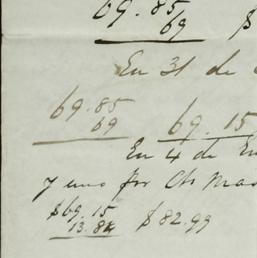 69.85
69 $
En 31 de
69.85
69 69.15
En 4 de En
y uno por Ch Mas
$69.15
13.84 $82.99